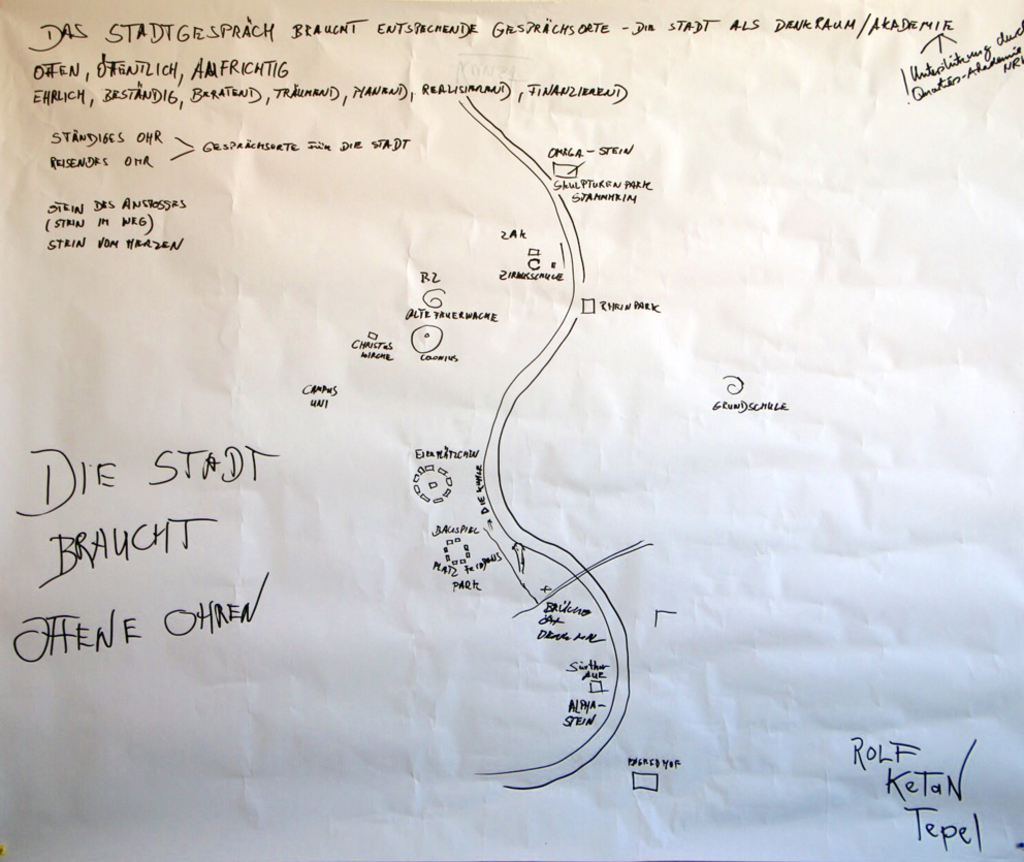 DAS STADTGESPRÄCH BRAUCHT ENTSPECHENDE GESPRÄCHSORTE – DIE STADT ALS DENKRAUM/AKADEMIE
OFFEN, ÖFFENTLICH, AUFRICHTIG
EHRLICH, BESTÄNDIG, BERATEND, TRÄUMEND, PLANEND, REALISIEREND, FINANZIEREND
! Unterstützung durch
Quartiers-Akademie
NRW
STÄNDIGES OHR
REISENDES OHR
GESPRÄCHSORTE FÜR DIE STADT
STEIN DES ANSTOSSES
(STEIN IM WEG)
STEIN VOM HERZEN
OMEGA-STEIN
SKULPTURENPARK
STAMMHEIM
ZAK
ZIRKUSSCHULE
RHEINPARK
ALTE FEUERWACHE
COLONIUS
CHRISTUS
KIRCHE
CAMPUS
UNI
GRUNDSCHULE
DIE STADT
BRAUCHT
OFFENE OHREN
EIERPLÄTZCHEN
BAUSPIEL
PLATZ FRIEDENS
PARK
BRÜCKE
DENKMAL
Sürther
AUE
ALPHA-
STEIN
ROLF
KeTaN
Tepel